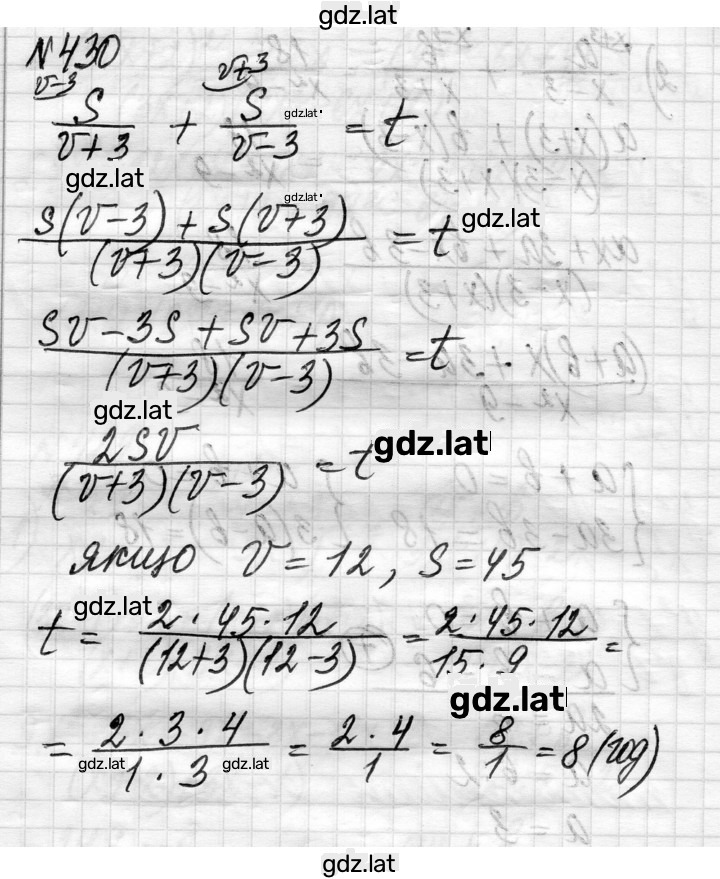 gdz.lat
N430
v-3 v+3
S/(v+3) + S/(v-3) = t
gdz.lat
gdz.lat
(S(v-3) + S(v+3))/((v+3)(v-3)) = t
gdz.lat
gdz.lat
(Sv-3S+Sv+3S)/((v+3)(v-3)) = t
2Sv/((v+3)(v-3)) = t
gdz.lat
gdz.lat
якщо v = 12, S = 45
t = (2·45·12)/((12+3)(12-3)) = (2·45·12)/(15·9) =
gdz.lat
gdz.lat
= (2·3·4)/(1·3) = (2·4)/1 = 8/1 = 8 (год)
gdz.lat gdz.lat
gdz.lat